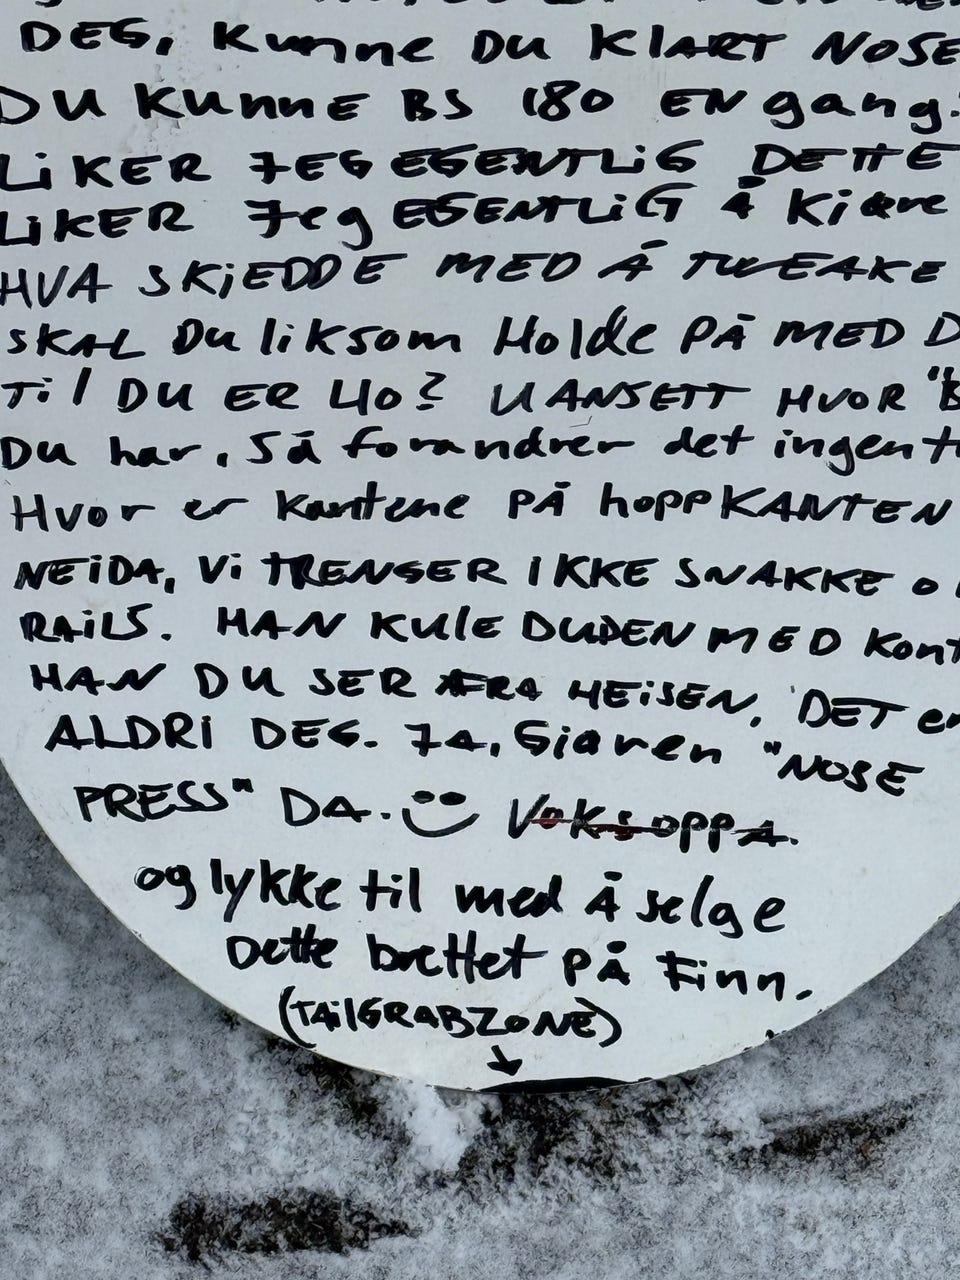 DEG, Kunne DU KlART NOSE
DU KUNNE BS 180 EN gang.
LiKER JEG EGENTLIG DETTE
LiKER Jeg EGENTLiG Å Kjøre
HVA SKjEDDE MED Å TWEAKE
SKAL DU liksom Holde PÅ MED D
Til DU ER 40? UANSETT HVOR "B
Du har, Så forandrer det ingent
Hvor er kantene PÅ hoppKANTEN
NEiDA, Vi TRENGER IKKE SNAKKE O
RAiLS. HAN KUlE DUDEN MED Kont
HAN DU SER FRA HEiSEN, DET er
ALDRI DEG. JA, Gjaven "NOSE
PRESS" DA. Voks oppA.
og lykke til med Å selge
Dette brettet PÅ Finn.
(TAilGRABZONE)